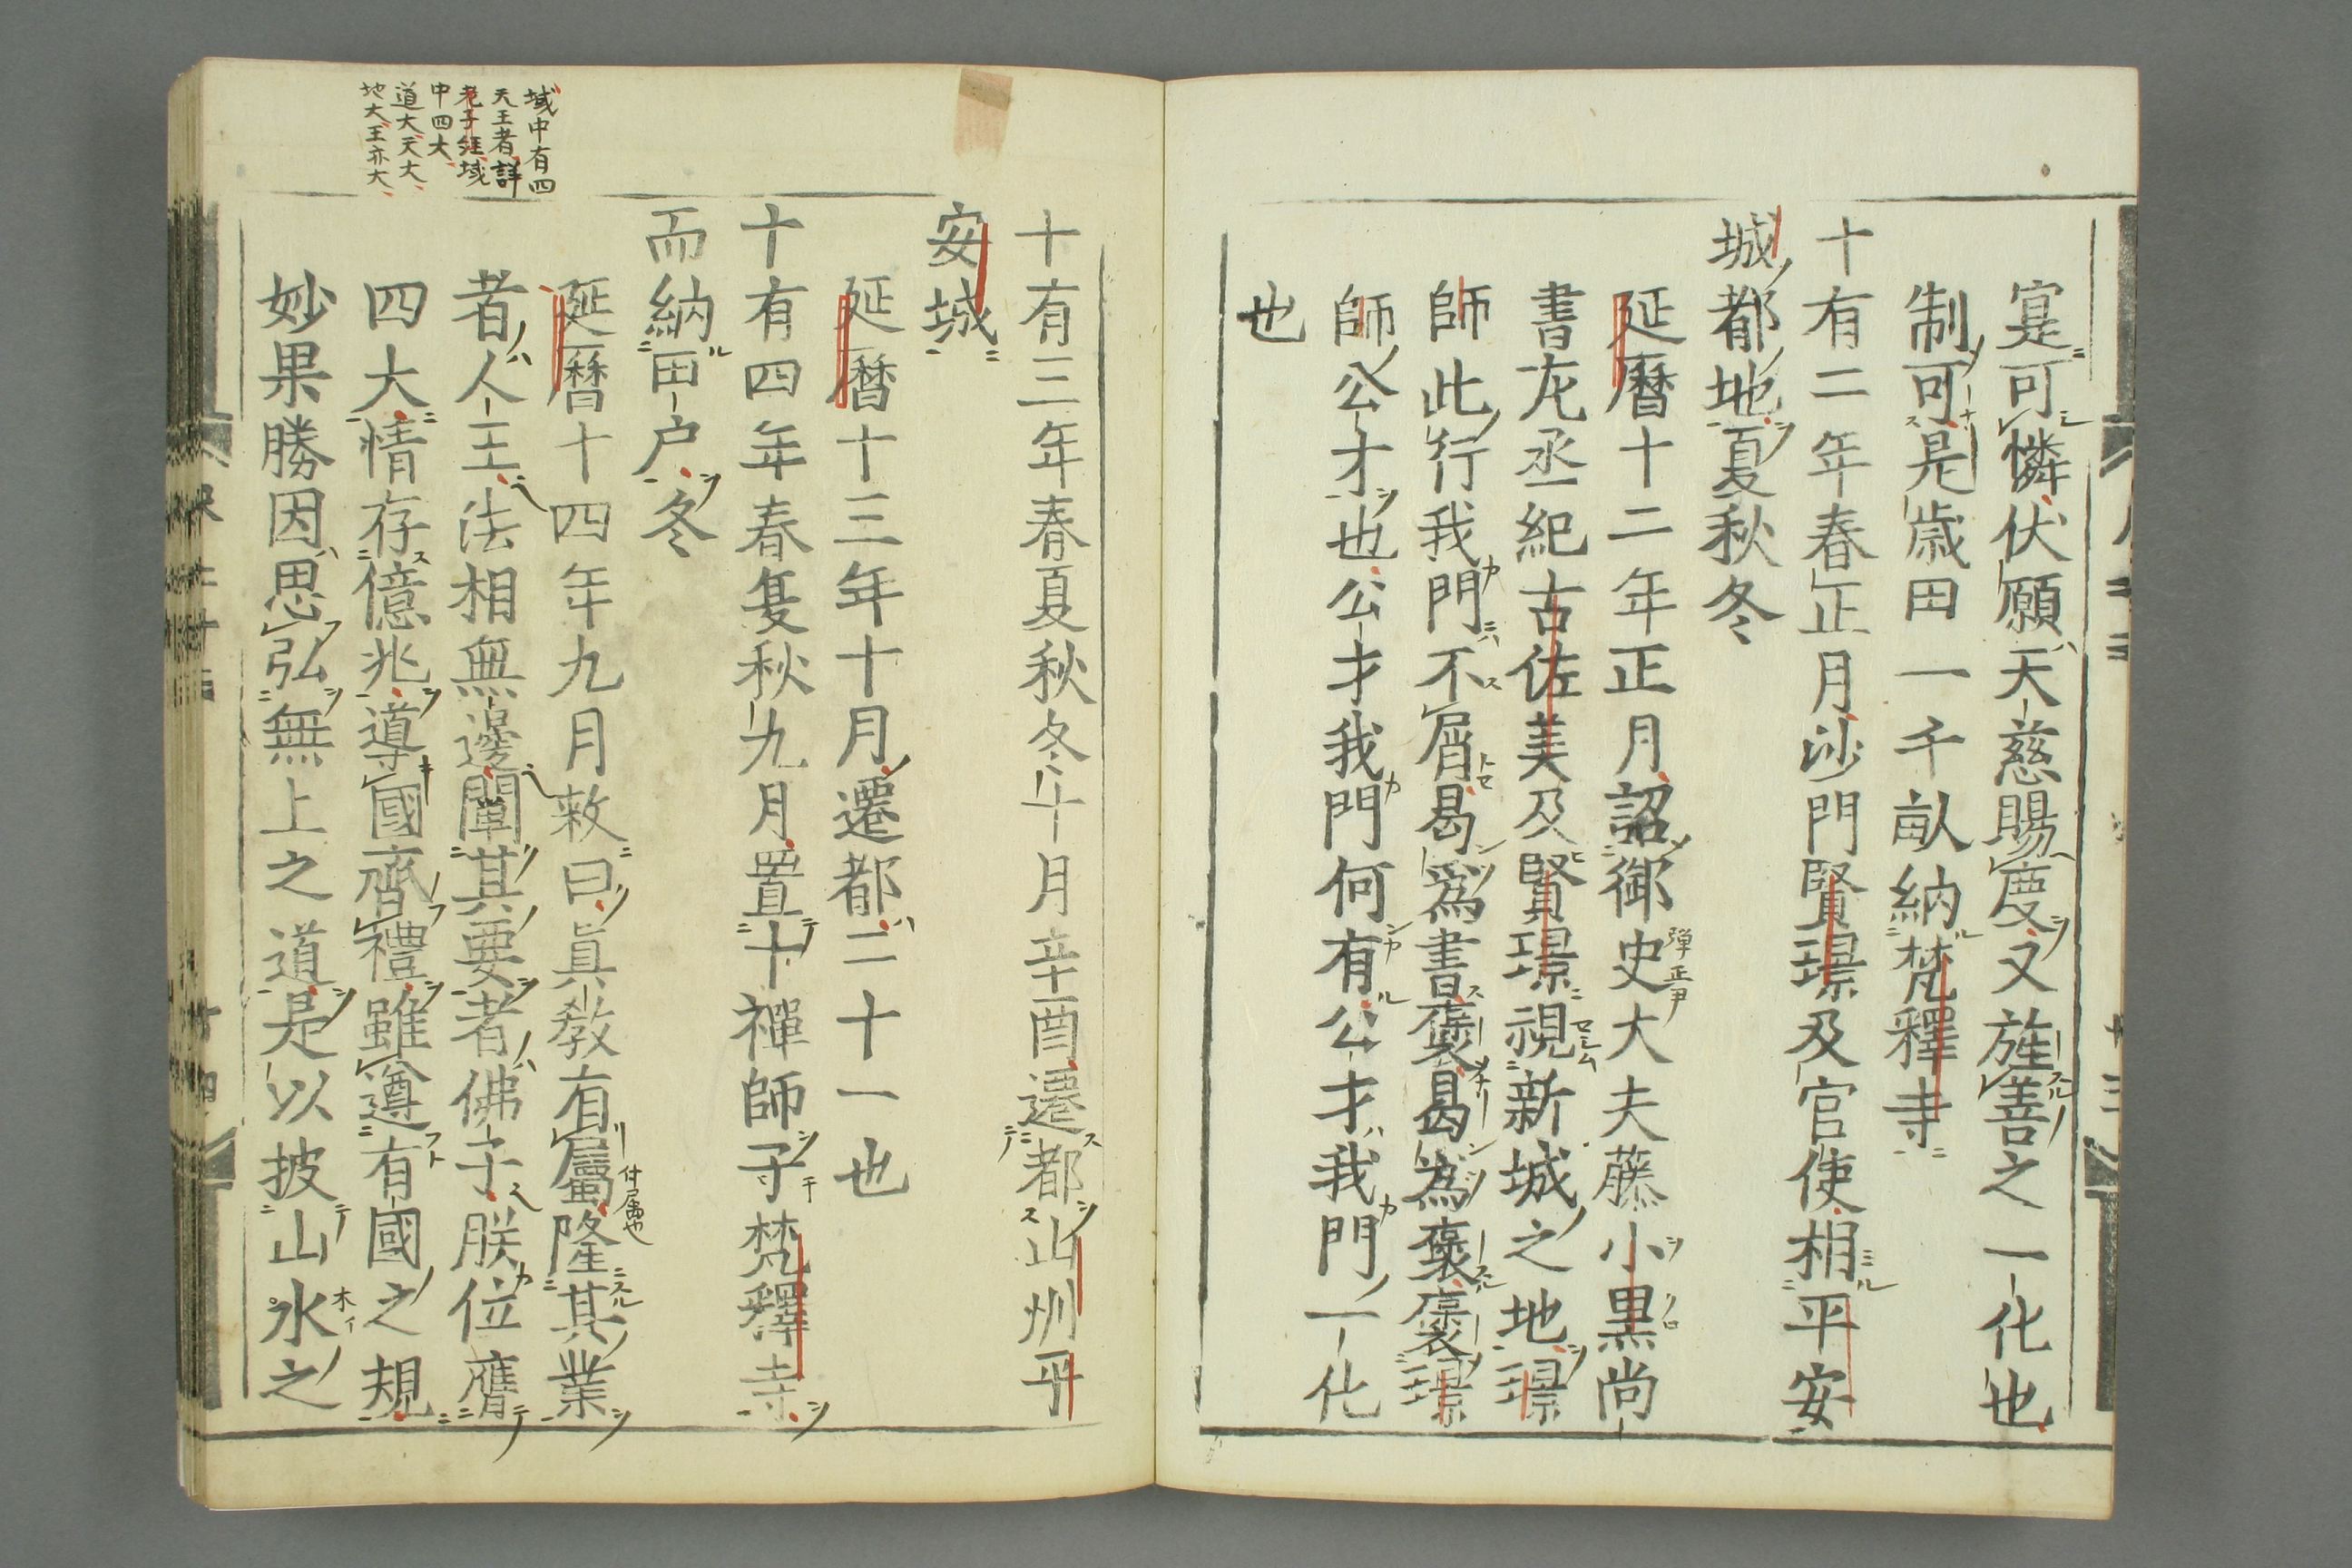 寔可憐伏願天慈賜度又旌善之一化也
制可是歳田一千畝納梵釋寺
十有二年春正月沙門賢璟及官使相平安
城都地夏秋冬
延暦十二年正月詔御史大夫藤小黒尚
書左丞紀古佐美及賢璟視新城之地璟
師此行我門不屑曷爲書褒曷為褒褒璟
師公才也公才我門何有公才我門一化
也
十有三年春夏秋冬十月辛酉遷都山州平
安城
延暦十三年十月遷都二十一也
十有四年春夏秋九月置十禪師于梵釋寺
而納田户冬
延暦十四年九月敕曰眞教有屬隆其業
者人王法相無邊闡其要者佛子朕位膺
四大情存億兆導國齊禮雖遵有國之規
妙果勝因思弘無上之道是以披山水之
域中有四
天王者詳
老子經域
中四大
道大天大
地大王亦大
弾正尹
付属也